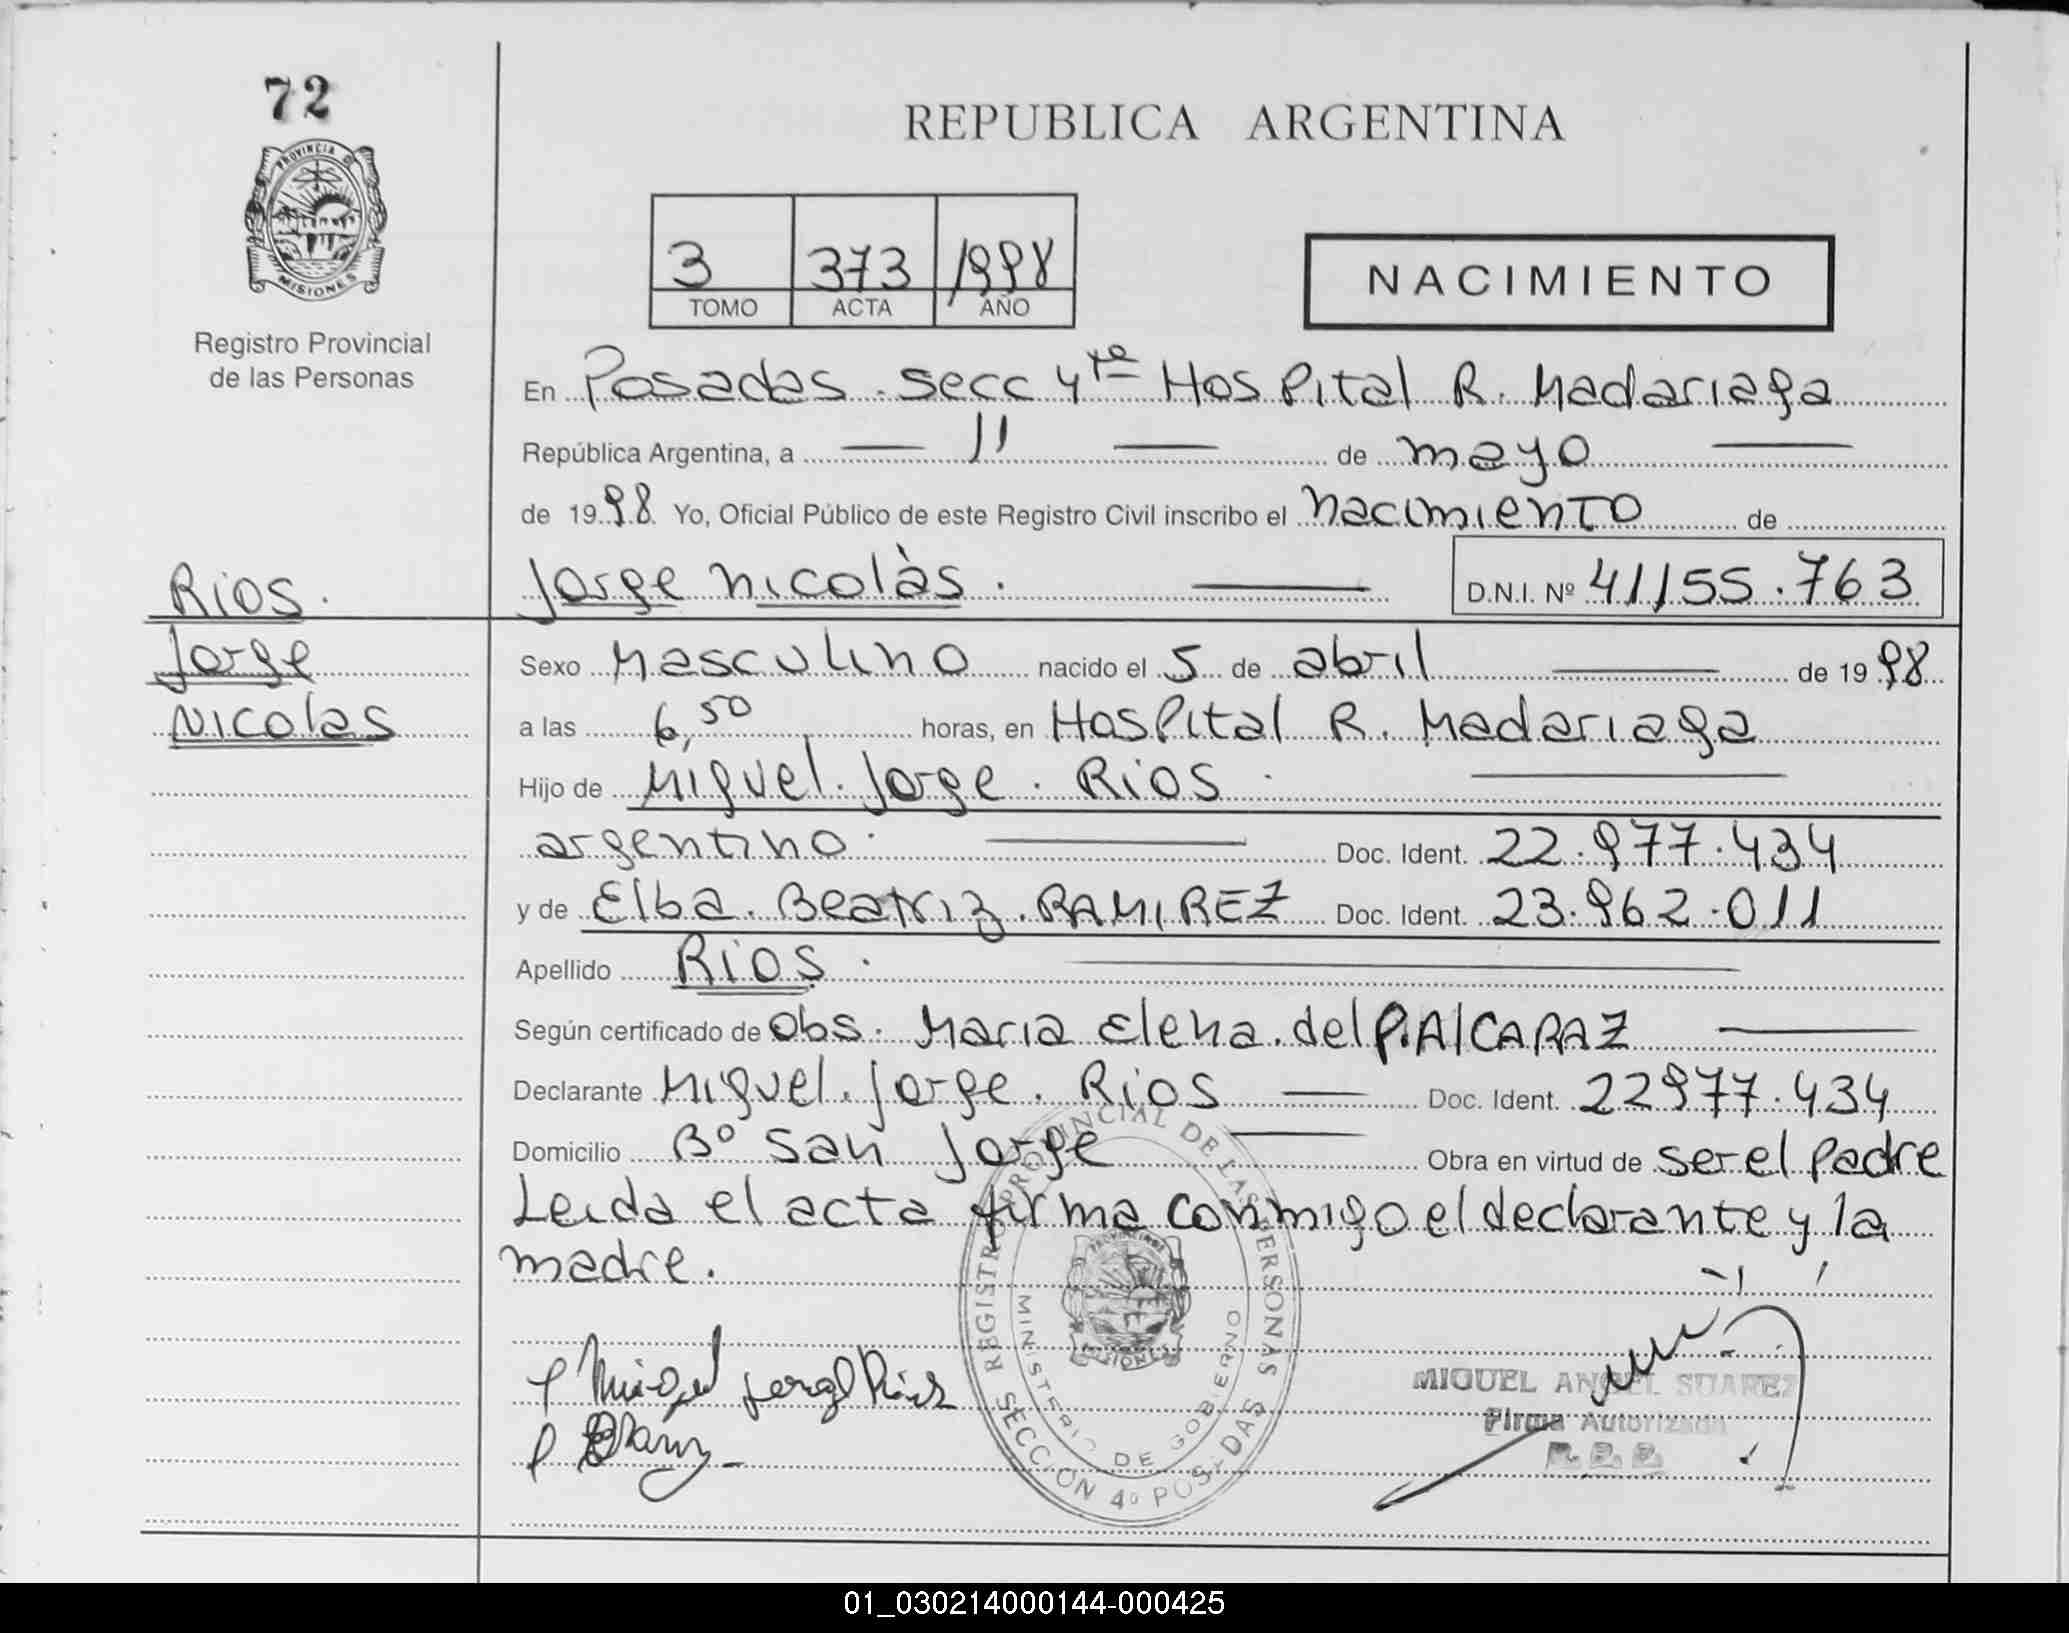 72
PROVINCIA DE
MISIONES
Registro Provincial
de las Personas
REPUBLICA ARGENTINA
3 373 1998
TOMO ACTA AÑO
NACIMIENTO
En Posadas. secc 4ta Hospital R. Madariaga
República Argentina, a — 11 — de mayo —
de 1998 Yo, Oficial Público de este Registro Civil inscribo el nacimiento de
Jorge nicolàs. — D.N.I. Nº 41155.763
Rios.
Jorge
Nicolas
Sexo Masculino nacido el 5 de abril — de 1998
a las 6,50 horas, en Hospital R. Madariaga
Hijo de Miguel. Jorge. Rios. —
argentino. — Doc. Ident. 22.977.434
y de Elba. Beatriz. RAMIREZ Doc. Ident. 23.962.011
Apellido Rios. —
Según certificado de Obs. Maria Elena. del P. AlCARAZ —
Declarante Miguel. Jorge. Rios — Doc. Ident. 22977.434
Domicilio Bº San Jorge — Obra en virtud de ser el padre
Leida el acta firma conmigo el declarante y la
madre.
REGISTRO PROVINCIAL DE LAS PERSONAS
MINISTERIO DE GOBIERNO
SECCION 4º POSADAS
MISIONES
Miguel Jorge Rios
MIGUEL ANGEL SUAREZ
Firma Autorizada
01_030214000144-000425